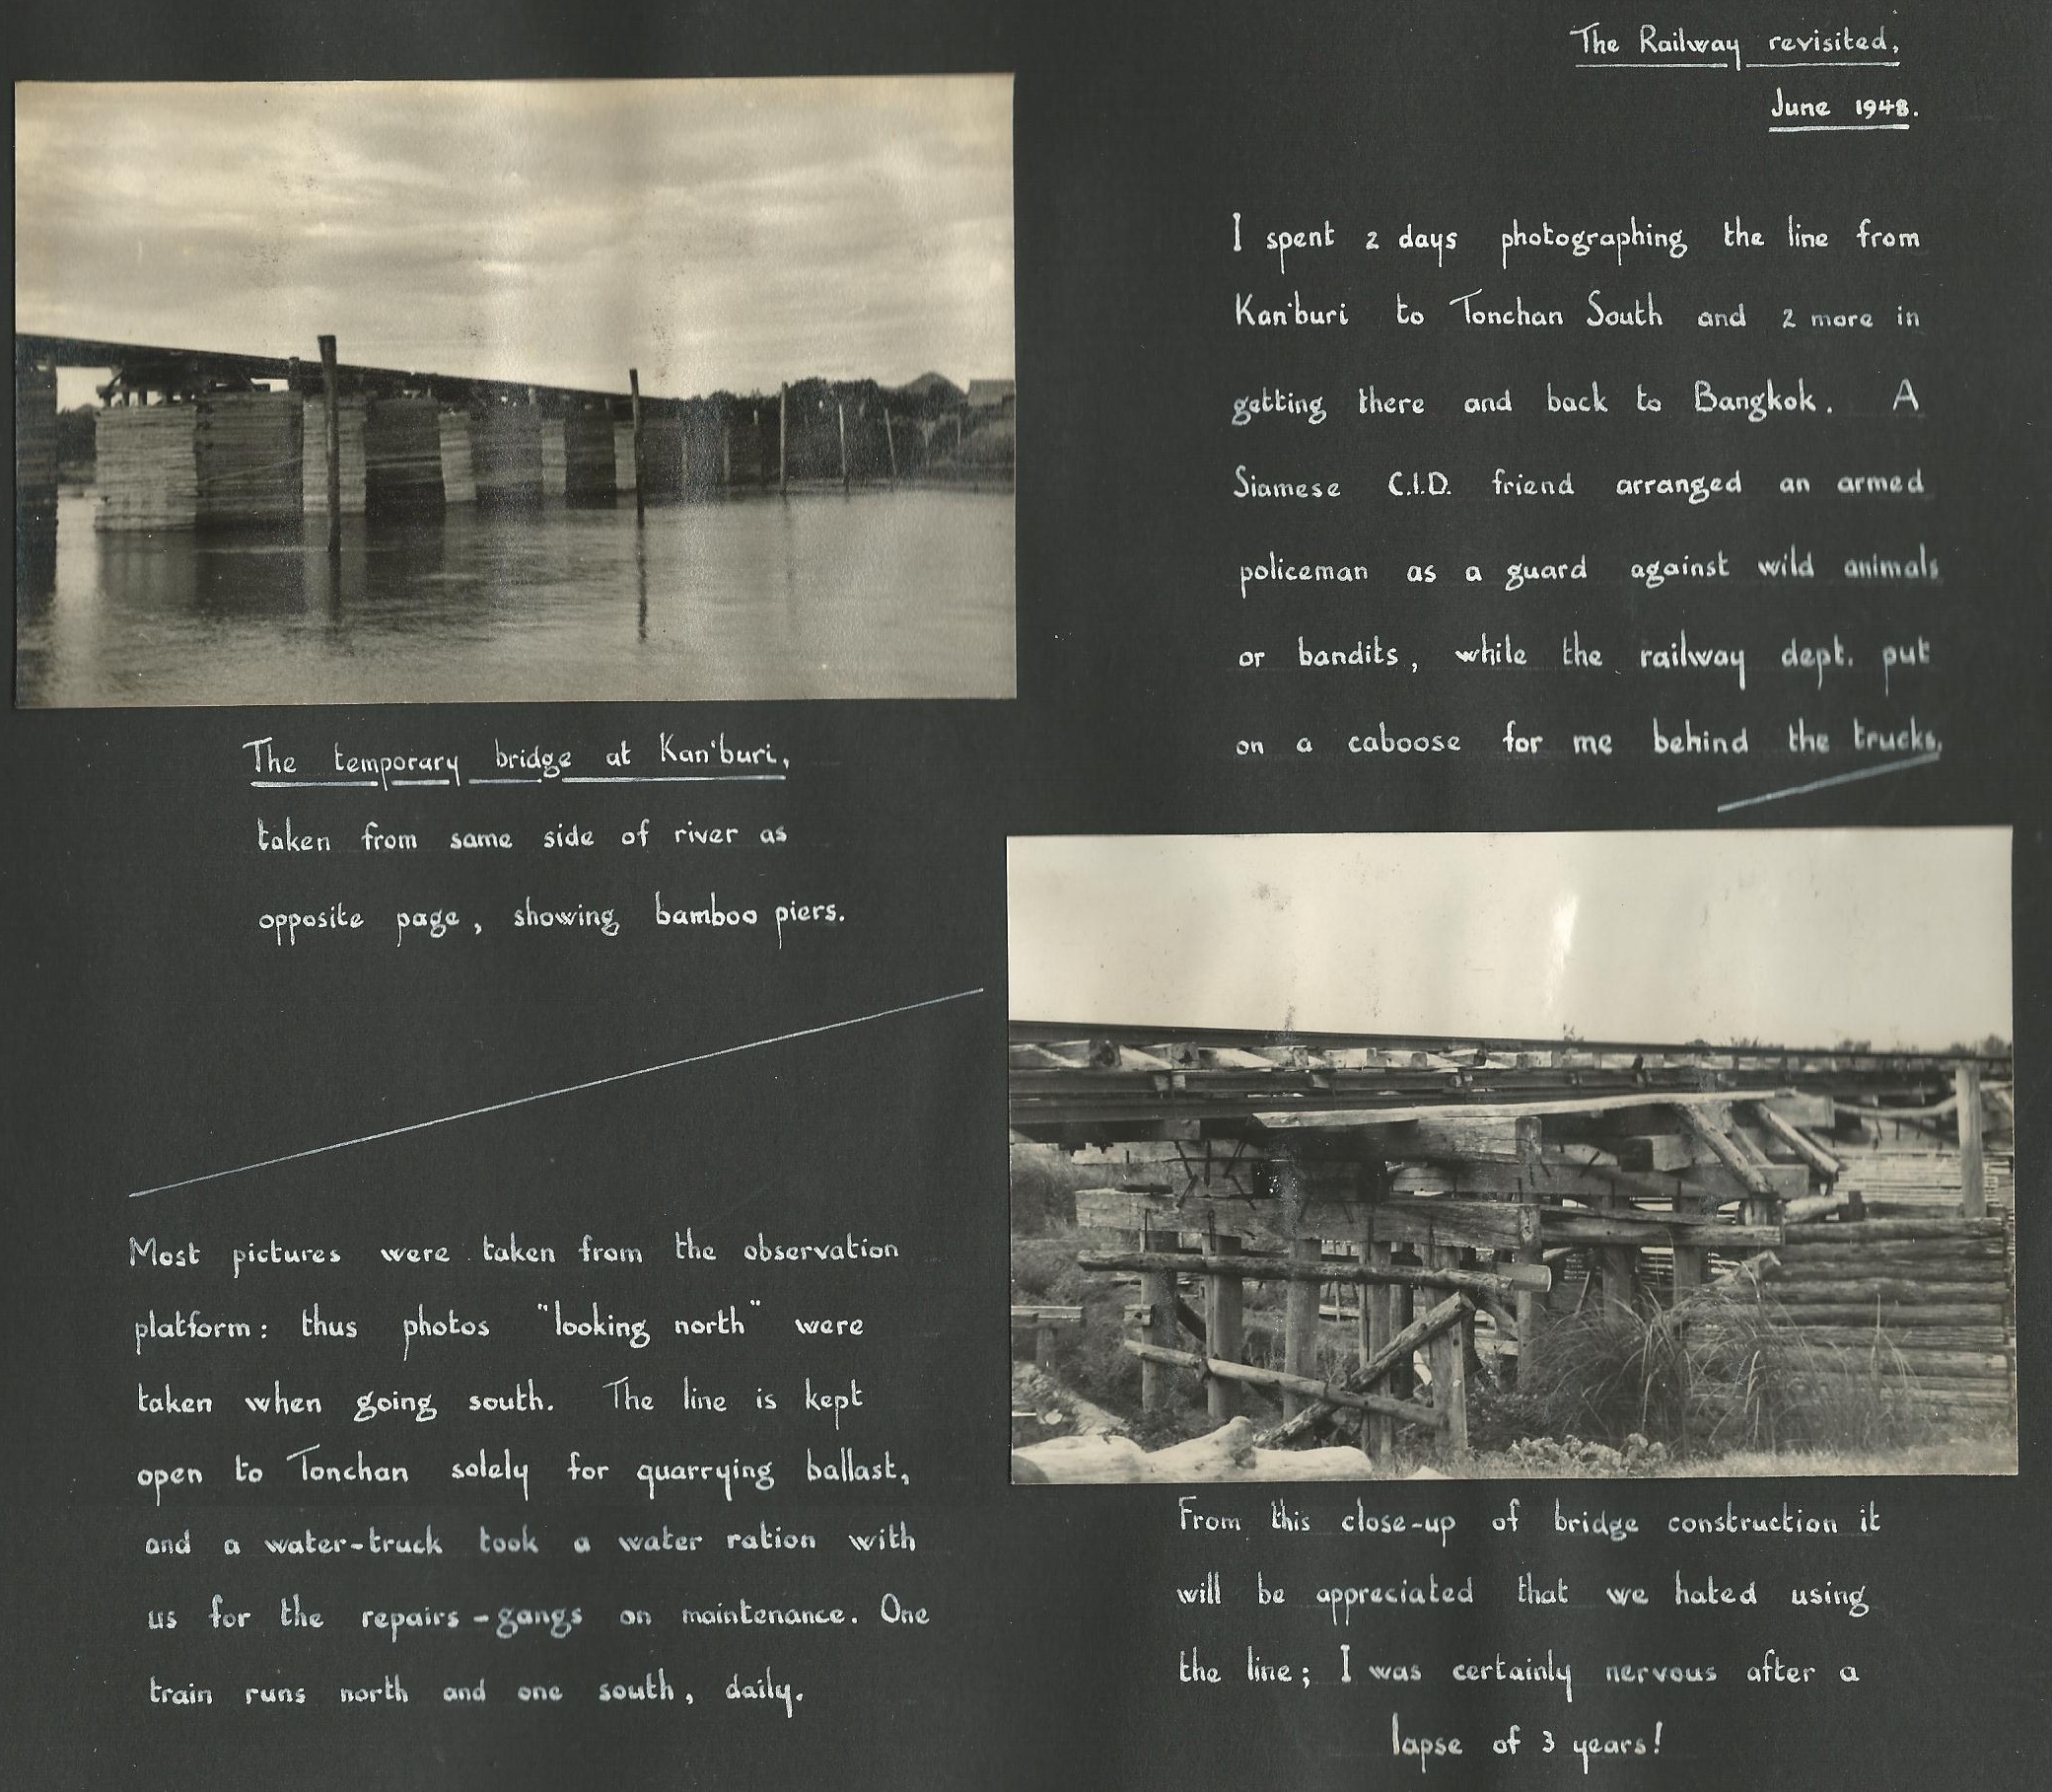 The Railway revisited,
June 1948.
I spent 2 days photographing the line from
Kan'buri to Tonchan South and 2 more in
getting there and back to Bangkok. A
Siamese C.I.D. friend arranged an armed
policeman as a guard against wild animals
or bandits, while the railway dept. put
on a caboose for me behind the trucks.
The temporary bridge at Kan'buri,
taken from same side of river as
opposite page, showing bamboo piers.
Most pictures were taken from the observation
platform: thus photos "looking north" were
taken when going south. The line is kept
open to Tonchan solely for quarrying ballast,
and a water-truck took a water ration with
us for the repairs-gangs on maintenance. One
train runs north and one south, daily.
From this close-up of bridge construction it
will be appreciated that we hated using
the line; I was certainly nervous after a
lapse of 3 years!